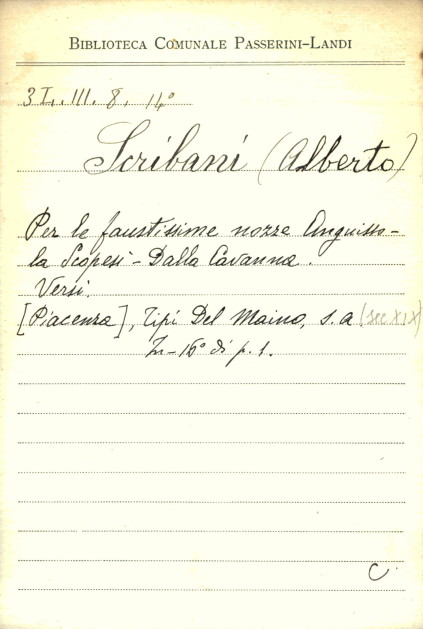 BIBLIOTECA COMUNALE PASSERINI-LANDI
3I.. III. 8. 14°
Scribani (Alberto)
Per le faustissime nozze Anguisso-
la Scopesi - Dalla Cavanna.
Versi.
[Piacenza], Tipi Del Maino, s. a. (sec XIX)
In-16° di p. 1.
C.